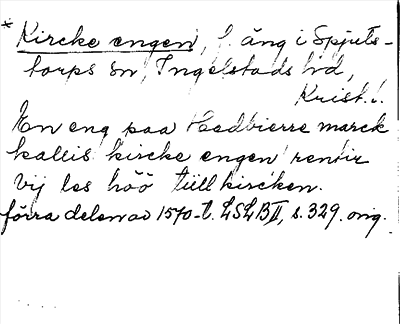 * Kircke engen, f. äng i Spjuts-
torps sn, Ingelstads hd,
Krist. l.
En eng paa Hedbierre marck
kallis kircke engen rentir
vij les höö tiill kircken.
förra delen av 1570-t. LSLB II, s. 329. orig.